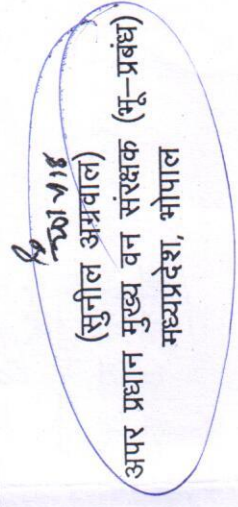 (सुनील अग्रवाल)
अपर प्रधान मुख्य वन संरक्षक (भू-प्रबंध)
मध्यप्रदेश, भोपाल